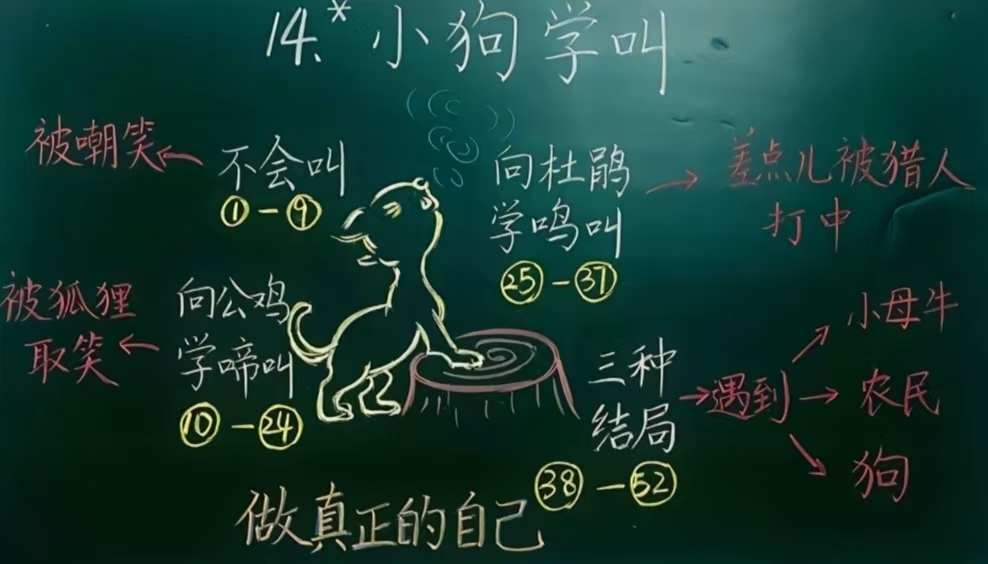 14.* 小狗学叫
被嘲笑
不会叫
①-⑨
向杜鹃
学鸣叫
㉕-㊲
差点儿被猎人
打中
被狐狸
取笑
向公鸡
学啼叫
⑩-㉔
三种
结局
㊳-52
遇到
小母牛
农民
狗
做真正的自己